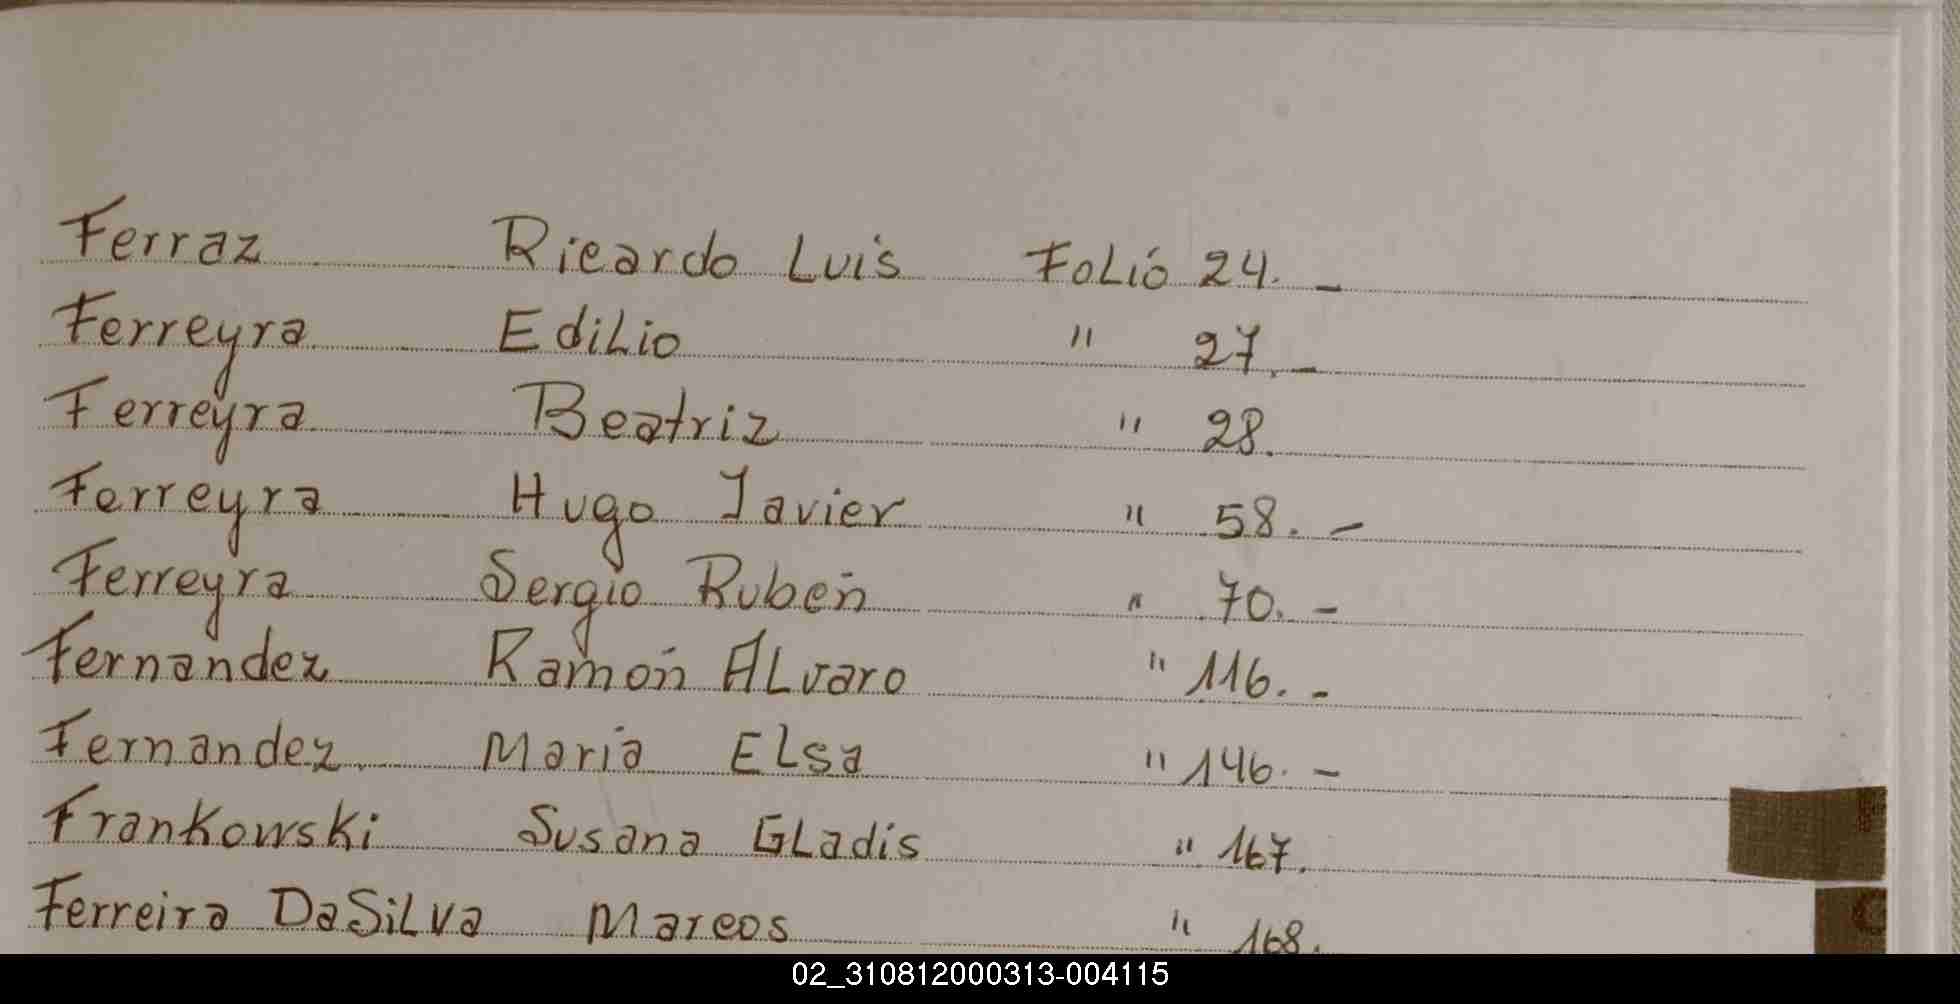 Ferraz Ricardo Luis Folió 24.-
Ferreyra Edilio " 27.-
Ferreyra Beatriz " 28.
Ferreyra Hugo Javier " 58.-
Ferreyra Sergio Rubén " 70.-
Fernandez Ramón Alvaro " 116.-
Fernandez. Maria Elsa " 146.-
Frankowski Susana Gladis " 167.
Ferreira DaSilva Marcos " 168.
F
G
02_310812000313-004115